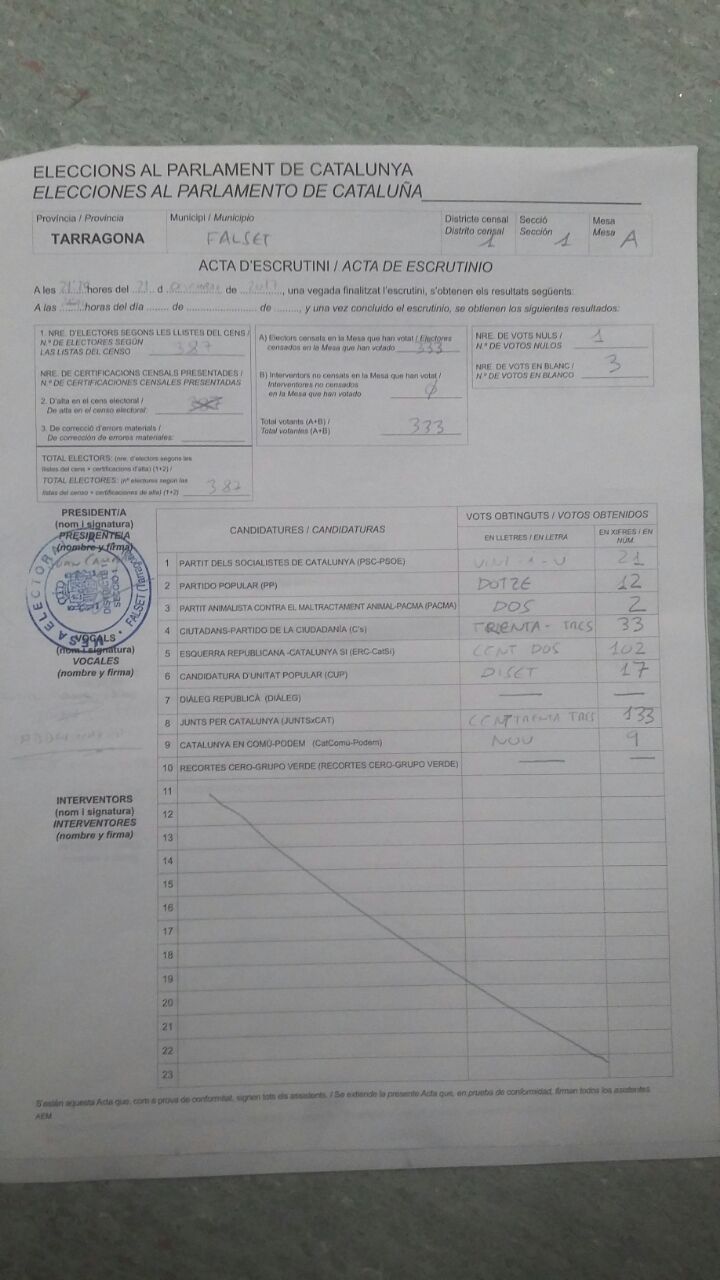 ELECCIONS AL PARLAMENT DE CATALUNYA
ELECCIONES AL PARLAMENTO DE CATALUÑA
Província / Provincia
TARRAGONA
Municipi / Municipio
FALSET
Districte censal
Distrito censal
1
Secció
Sección 1
Mesa
Mesa A
ACTA D'ESCRUTINI / ACTA DE ESCRUTINIO
A les hores del 21 d de 2017, una vegada finalitzat l'escrutini, s'obtenen els resultats següents:
A las horas del día ........ de ........................ de ........., y una vez concluido el escrutinio, se obtienen los siguientes resultados:
1. NRE. D'ELECTORS SEGONS LES LLISTES DEL CENS /
N.º DE ELECTORES SEGÚN
LAS LISTAS DEL CENSO 387
NRE. DE CERTIFICACIONS CENSALS PRESENTADES /
N.º DE CERTIFICACIONES CENSALES PRESENTADAS
2. D'alta en el cens electoral /
De alta en el censo electoral:
3. De correcció d'errors materials /
De corrección de errores materiales:
TOTAL ELECTORS: (nre. d'electors segons les
llistes del cens + certificacions d'alta) (1+2) /
TOTAL ELECTORES: (nº electores según las
listas del censo + certificaciones de alta) (1+2) 387
A) Electors censats en la Mesa que han votat / Electores
censados en la Mesa que han votado 333
B) Interventors no censats en la Mesa que han votat /
Interventores no censados
en la Mesa que han votado 0
Total votants (A+B) /
Total votantes (A+B) 333
NRE. DE VOTS NULS /
N.º DE VOTOS NULOS 1
NRE. DE VOTS EN BLANC /
N.º DE VOTOS EN BLANCO 3
PRESIDENT/A
(nom i signatura)
PRESIDENTE/A
(nombre y firma)
MESA ELECTORAL
FALSET (Tarragona)
DISTRICTE 1
SECCIO 1
VOCALS
(nom i signatura)
VOCALES
(nombre y firma)
INTERVENTORS
(nom i signatura)
INTERVENTORES
(nombre y firma)
CANDIDATURES / CANDIDATURAS
VOTS OBTINGUTS / VOTOS OBTENIDOS
EN LLETRES / EN LETRA
EN XIFRES / EN NÚM.
1 PARTIT DELS SOCIALISTES DE CATALUNYA (PSC-PSOE) VINT-I-U 21
2 PARTIDO POPULAR (PP) DOTZE 12
3 PARTIT ANIMALISTA CONTRA EL MALTRACTAMENT ANIMAL-PACMA (PACMA) DOS 2
4 CIUTADANS-PARTIDO DE LA CIUDADANÍA (C's) TRENTA-TRES 33
5 ESQUERRA REPUBLICANA -CATALUNYA SI (ERC-CatSí) CENT DOS 102
6 CANDIDATURA D'UNITAT POPULAR (CUP) DISET 17
7 DIÀLEG REPUBLICÀ (DIÀLEG)
8 JUNTS PER CATALUNYA (JUNTSxCAT) CENT TRENTA TRES 133
9 CATALUNYA EN COMÚ-PODEM (CatComú-Podem) NOU 9
10 RECORTES CERO-GRUPO VERDE (RECORTES CERO-GRUPO VERDE)
11
12
13
14
15
16
17
18
19
20
21
22
23
S'estén aquesta Acta que, com a prova de conformitat, signen tots els assistents. / Se extiende la presente Acta que, en prueba de conformidad, firman todos los asistentes.
AEM